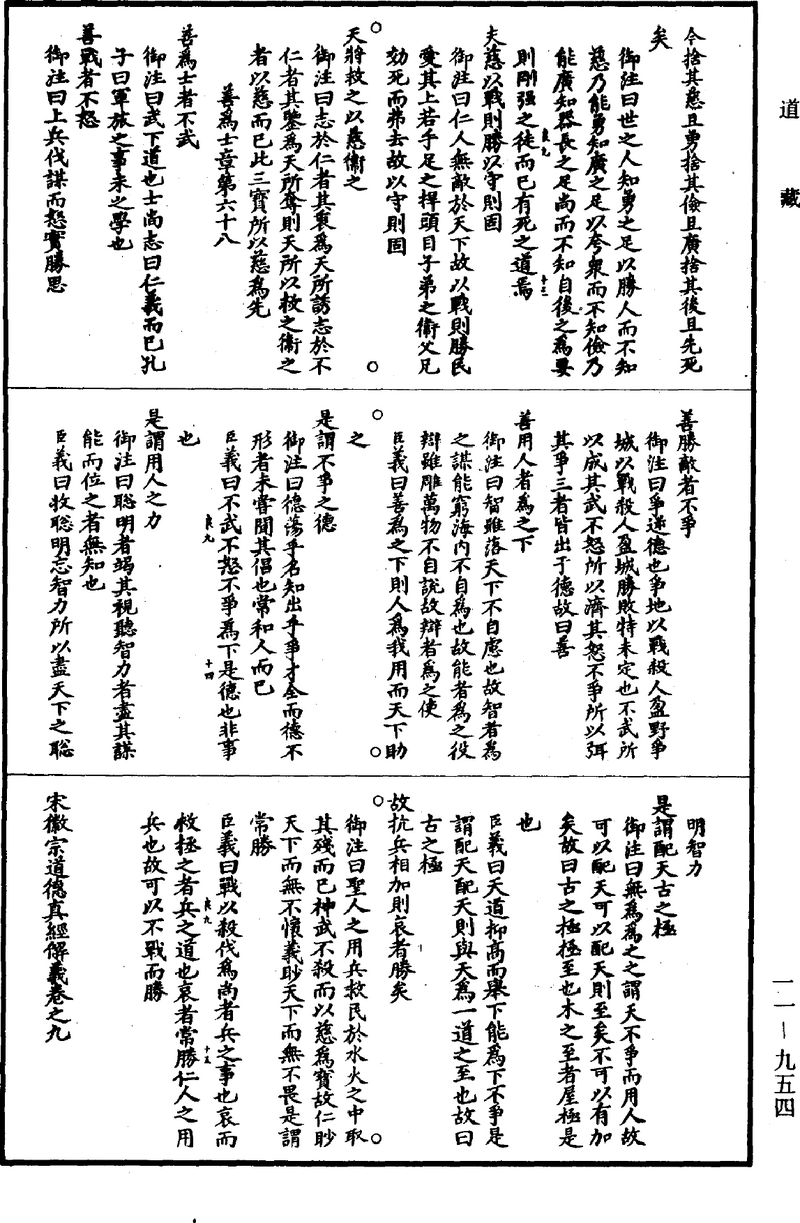 道藏
今捨其慈且勇捨其儉且廣捨其後且先死
矣
御注曰世之人知勇之足以勝人而不知
慈乃能勇知廣之足以夸衆而不知儉乃
能廣知器長之足尚而不知自後之爲要
則剛强之徒而已有死之道焉
良九
十三
夫慈以戰則勝以守則固
御注曰仁人無敵於天下故以戰則勝民
愛其上若手足之捍頭目子弟之衞父兄
効死而弗去故以守則固
天將救之以慈衞之
御注曰志於仁者其衷爲天所誘志於不
仁者其鑒爲天所奪則天所以救之衞之
者以慈而已此三寶所以慈爲先
善爲士章第六十八
善爲士者不武
御注曰武下道也士尚志曰仁義而已孔
子曰軍旅之事未之學也
善戰者不怒
御注曰上兵伐謀而怒實勝思
善勝敵者不爭
御注曰爭逆德也爭地以戰殺人盈野爭
城以戰殺人盈城勝敗特未定也不武所
以成其武不怒所以濟其怒不爭所以弭
其爭三者皆出于德故曰善
善用人者爲之下
御注曰智雖落天下不自慮也故智者爲
之謀能窮海內不自爲也故能者爲之役
辯雖雕萬物不自說故辯者爲之使
臣義曰善爲之下則人爲我用而天下助
之
是謂不爭之德
御注曰德蕩乎名知出乎爭才全而德不
形者未嘗聞其倡也常和人而已
臣義曰不武不怒不爭爲下是德也非事
良九
十四
也
是謂用人之力
御注曰聰明者竭其視聽智力者盡其謀
能而位之者無知也
臣義曰收聰明忘智力所以盡天下之聡
明智力
是謂配天古之極
御注曰無爲爲之之謂天不爭而用人故
可以配天可以配天則至矣不可以有加
矣故曰古之極極至也木之至者屋極是
也
臣義曰天道抑高而舉下能爲下不爭是
謂配天配天則與天爲一道之至也故曰
古之極
故抗兵相加則哀者勝矣
御注曰聖人之用兵救民於水火之中取
其殘而已神武不殺而以慈爲寶故仁眇
天下而無不懷義眇天下而無不畏是謂
常勝
臣義曰戰以殺伐爲尚者兵之事也哀而
救拯之者兵之道也哀者常勝仁人之用
良九
十五
兵也故可以不戰而勝
宋徽宗道德真經解義卷之九
一一－九五四